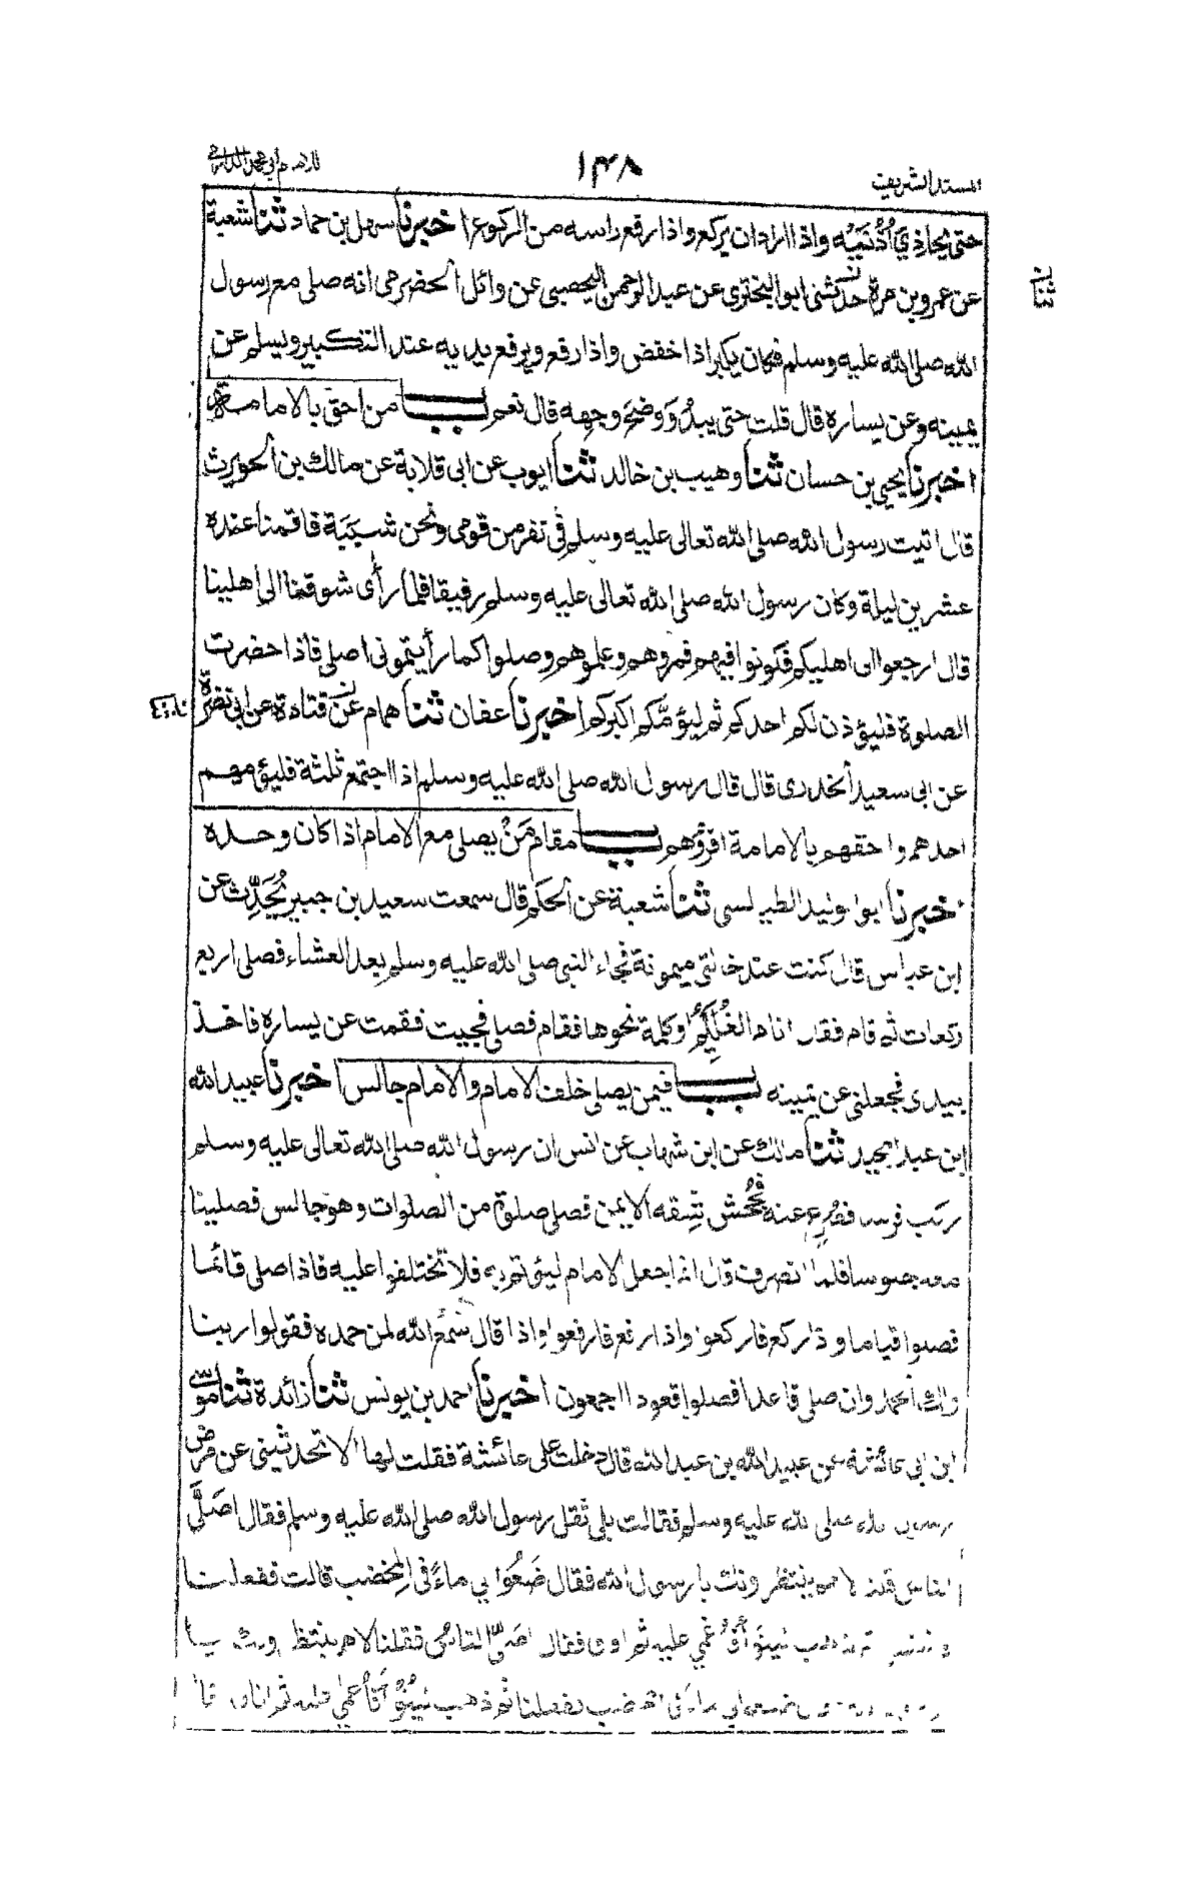 المسند الشريف
١٤٨
للامام أبي محمد الدارمي
حتى يحاذي أُذُنَيْه واذا اراد ان يركع واذا رفع راسه من الركوع اخبرنا سهل بن حماد ثنا شعبة
عن عمرو بن مرة حدثنى ابو البخترى عن عبد الرحمن اليحصبى عن وائل الحضرمى انه صلى مع رسول
ثنا
الله صلى الله عليه وسلم فكان يكبر اذا خفض واذا رفع ويرفع يديه عند التكبير ويسلم عن
يمينه وعن يساره قال قلت حتى يبدُوَ وَضَحُ وجهه قال نعم باب من احق بالامامة
اخبرنا يحيى بن حسان ثنا وهيب بن خالد ثنا ايوب عن ابى قلابة عن مالك بن الحويرث
قال اتيت رسول الله صلى الله تعالى عليه وسلم فى نفر من قومى ونحن شَبَبَة فاقمنا عنده
عشرين ليلة وكان رسول الله صلى الله تعالى عليه وسلم رفيقا فلما رأى شوقنا الى اهلينا
قال ارجعوا الى اهليكم فكونوا فيهم فمروهم وعلموهم وصلوا كما رأيتمونى اصلى فاذا حضرت
الصلوة فليؤذن لكم احدكم ثم ليؤمّكم اكبركم اخبرنا عفان ثنا همام عن قتادة عن ابى نضرة
عن ابى سعيد الخدرى قال قال رسول الله صلى الله عليه وسلم اذا اجتمع ثلثة فليؤمهم
احدهم واحقهم بالامامة اقرؤهم باب مقام مَنْ يصلى مع الامام اذا كان وحده
اخبرنا ابو الوليد الطيالسى ثنا شعبة عن الحكم قال سمعت سعيد بن جبير يُحَدِّث عن
ابن عباس قال كنت عند خالتى ميمونة فجاء النبى صلى الله عليه وسلم بعد العشاء فصلى اربع
ركعات ثم قام فقال انام الغُلَيِّمُ او كلمة نحوها فقام فصلى فجيت فقمت عن يساره فاخذ
بيدى فجعلنى عن يمينه باب فيمن يصلى خلف الامام والامام جالس اخبرنا عبيد الله
ابن عبد المجيد ثنا مالك عن ابن شهاب عن انس ان رسول الله صلى الله تعالى عليه وسلم
ركب فرسا فصُرِع عنه فجُحُش شِقه الايمن فصلى صلوة من الصلوات وهو جالس فصلينا
معه جلوسا فلما انصرف قال انما جعل الامام ليؤتم به فلا تختلفوا عليه فاذا صلى قائما
فصلوا قياما و ذا ركع فاركعوا واذا رفع فارفعوا واذا قال سَمِع الله لمن حمده فقولوا ربنا
ولك الحمد وان صلى قاعدا فصلوا قعودا اجمعون اخبرنا احمد بن يونس ثنا زائدة ثنا موسى
ابن ابى عائشة عن عبيد الله بن عبد الله قال دخلت على عائشة فقلت لها الا تحدثينى عن مرض
رسول الله صلى الله عليه وسلم فقالت بلى ثقل رسول الله صلى الله عليه وسلم فقال اَصَلَّى
الناس قلنا لا هم ينتظرونك يا رسول الله فقال ضَعُوْا لي ماءً فى المِخضب قالت ففعلنا
ذهب لينوْءَ فأُغْمي عليه ثم افاق فقال اصَلَّى الناس فقلنا لا هم ينتظرونك يا
ضعوا لي ماء فى المخضب ففعلنا ثم ذهب لينُوْءَ فأُغمي عليه ثم افاق